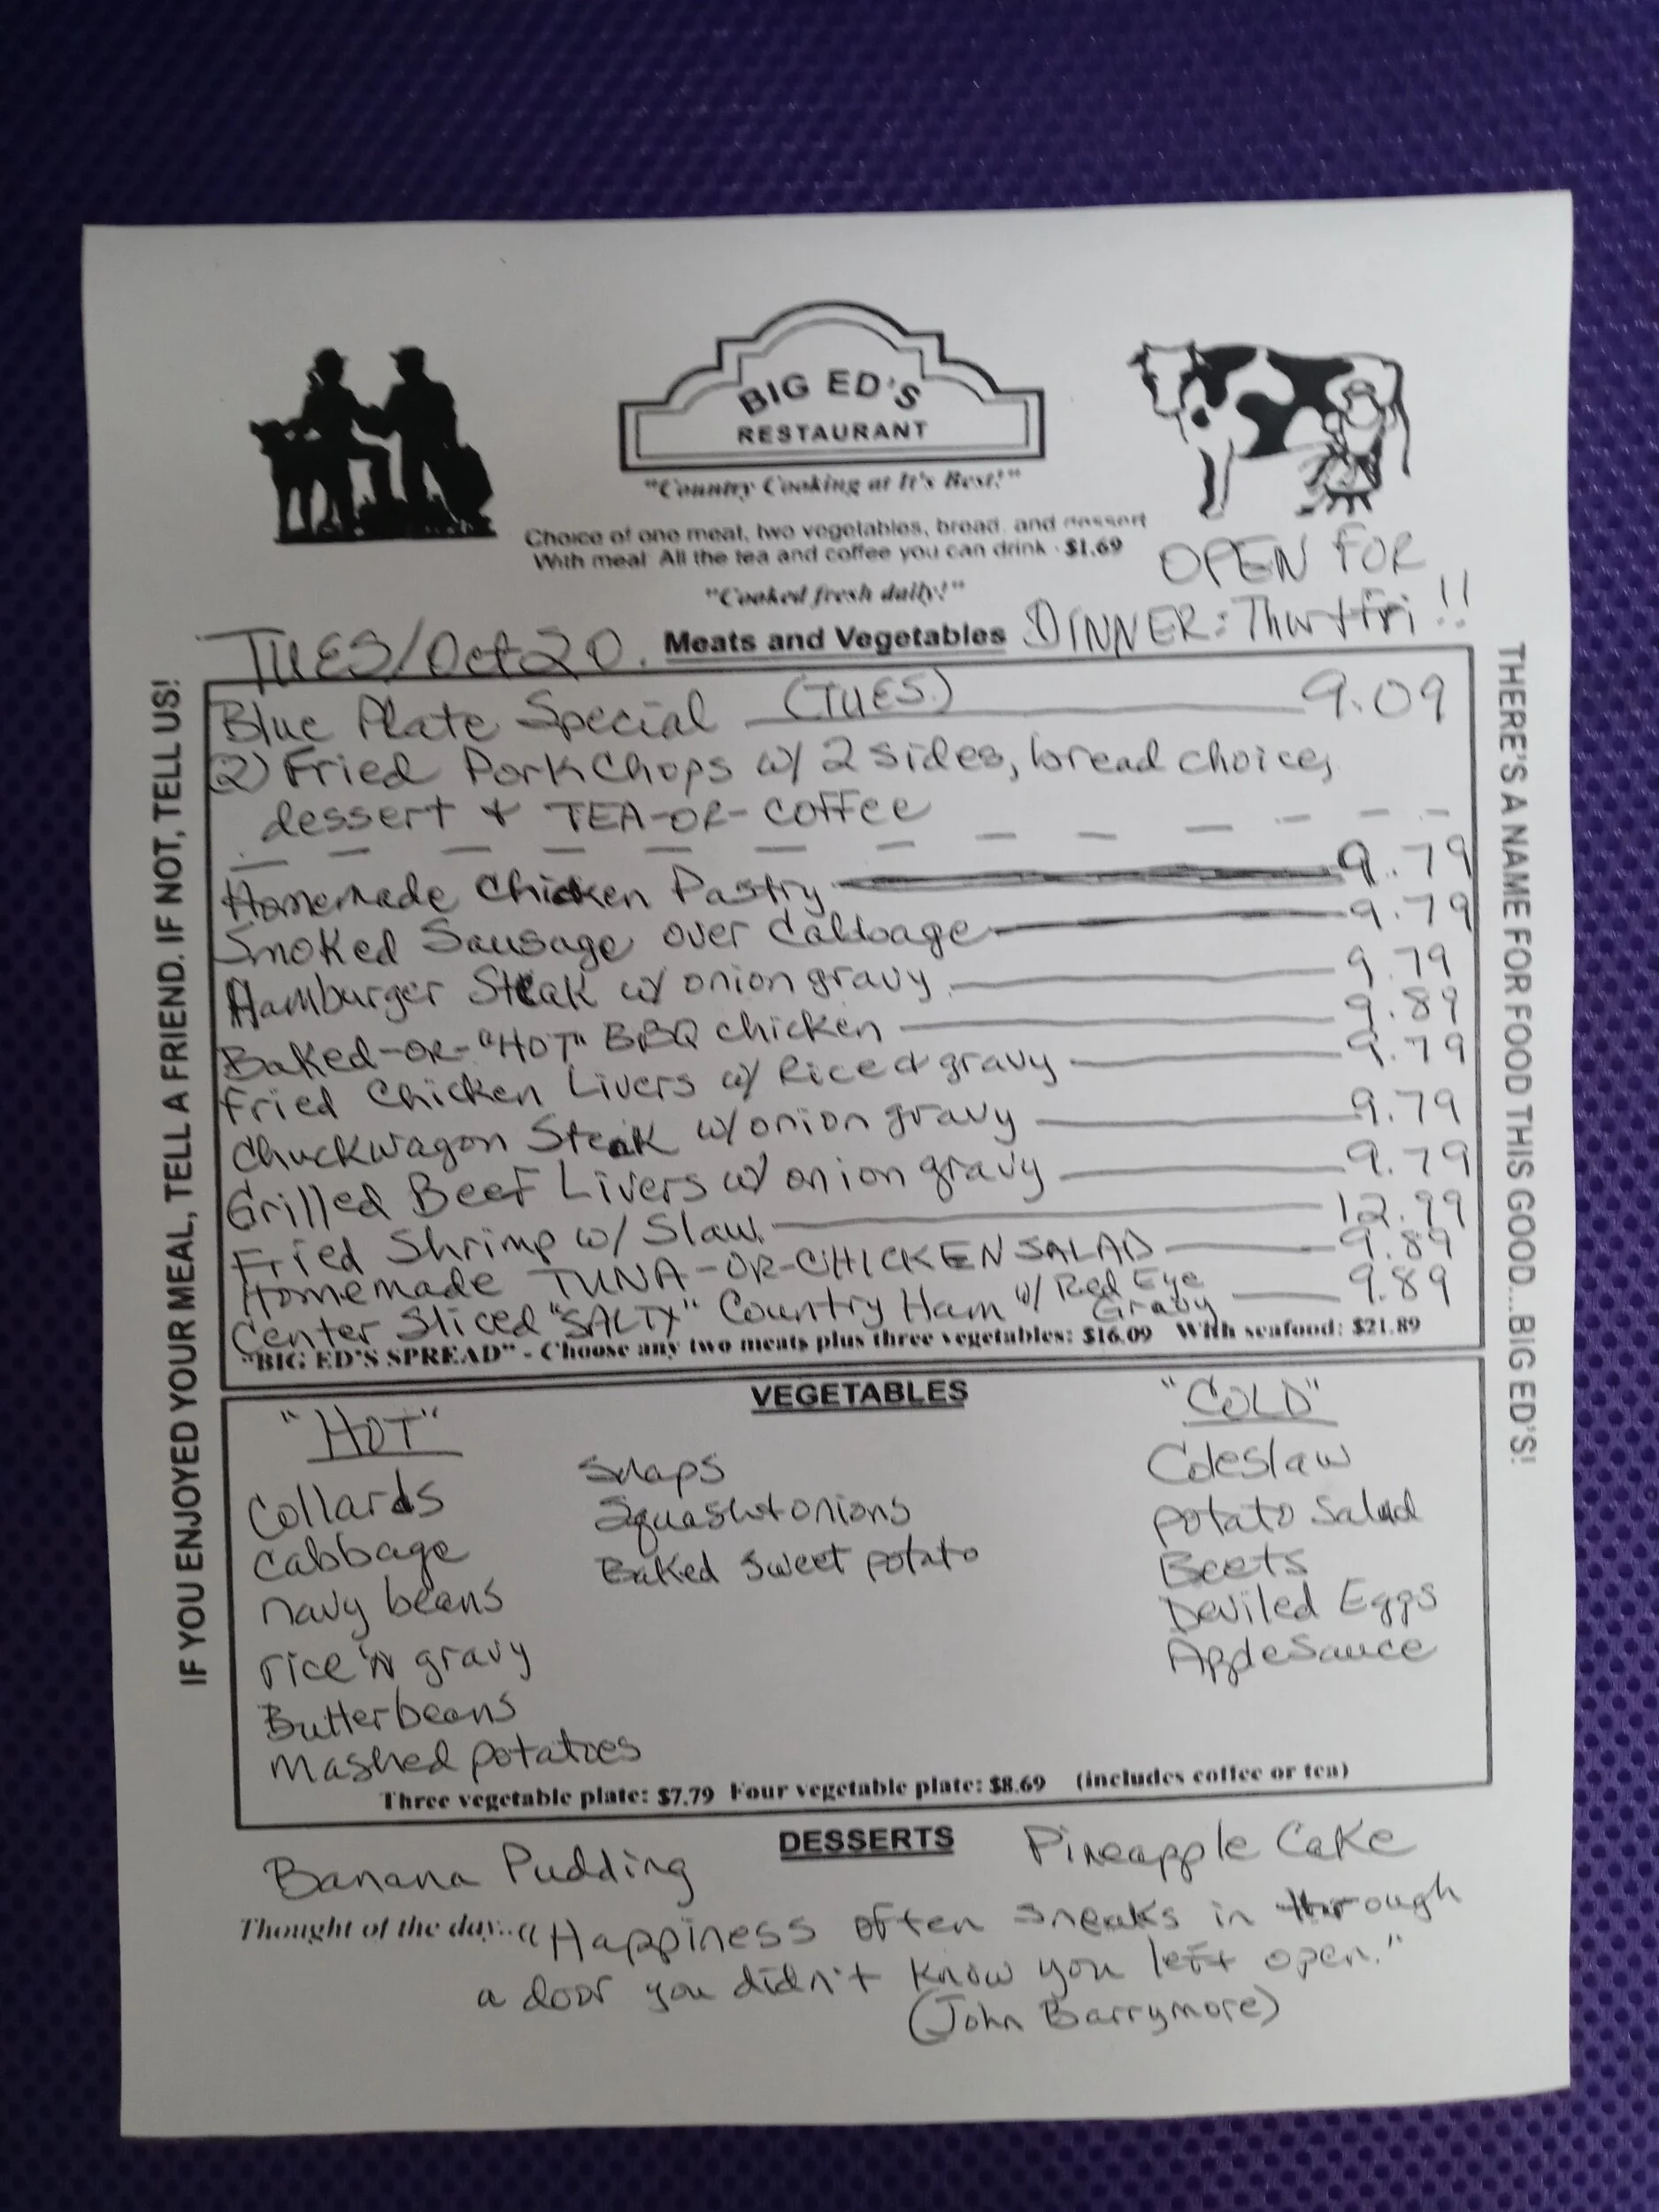 BIG ED'S
RESTAURANT
"Country Cooking at It's Best!"
Choice of one meat, two vegetables, bread, and dessert
With meal: All the tea and coffee you can drink - $1.69
"Cooked fresh daily!"
OPEN FOR
DINNER: Thur + Fri !!
TUES/Oct 20.
Meats and Vegetables
Blue Plate Special (TUES.) 9.09
(2) Fried Pork Chops w/ 2 sides, bread choice,
dessert & TEA-OR-COFFEE
Homemade Chicken Pastry 9.79
Smoked Sausage over Cabbage 9.79
Hamburger Steak w/ onion gravy 9.79
Baked-OR-"HOT" BBQ chicken 9.89
Fried Chicken Livers w/ Rice & gravy 9.79
Chuckwagon Steak w/ onion gravy 9.79
Grilled Beef Livers w/ onion gravy 9.79
Fried Shrimp w/ Slaw. 12.99
Homemade TUNA-OR-CHICKEN SALAD 9.89
Center Sliced "SALTY" Country Ham w/ Red Eye Gravy 9.89
"BIG ED'S SPREAD" - Choose any two meats plus three vegetables: $16.09 With seafood: $21.89
VEGETABLES
"HOT"
Collards
Cabbage
navy beans
rice 'n gravy
Butterbeans
Mashed potatoes
Snaps
Squash+onions
Baked Sweet potato
"COLD"
Coleslaw
potato Salad
Beets
Deviled Eggs
AppleSauce
Three vegetable plate: $7.79 Four vegetable plate: $8.69 (includes coffee or tea)
DESSERTS
Banana Pudding
Pineapple Cake
Thought of the day... "Happiness often sneaks in through
a door you didn't know you left open."
(John Barrymore)
IF YOU ENJOYED YOUR MEAL, TELL A FRIEND. IF NOT, TELL US!
THERE'S A NAME FOR FOOD THIS GOOD...BIG ED'S!